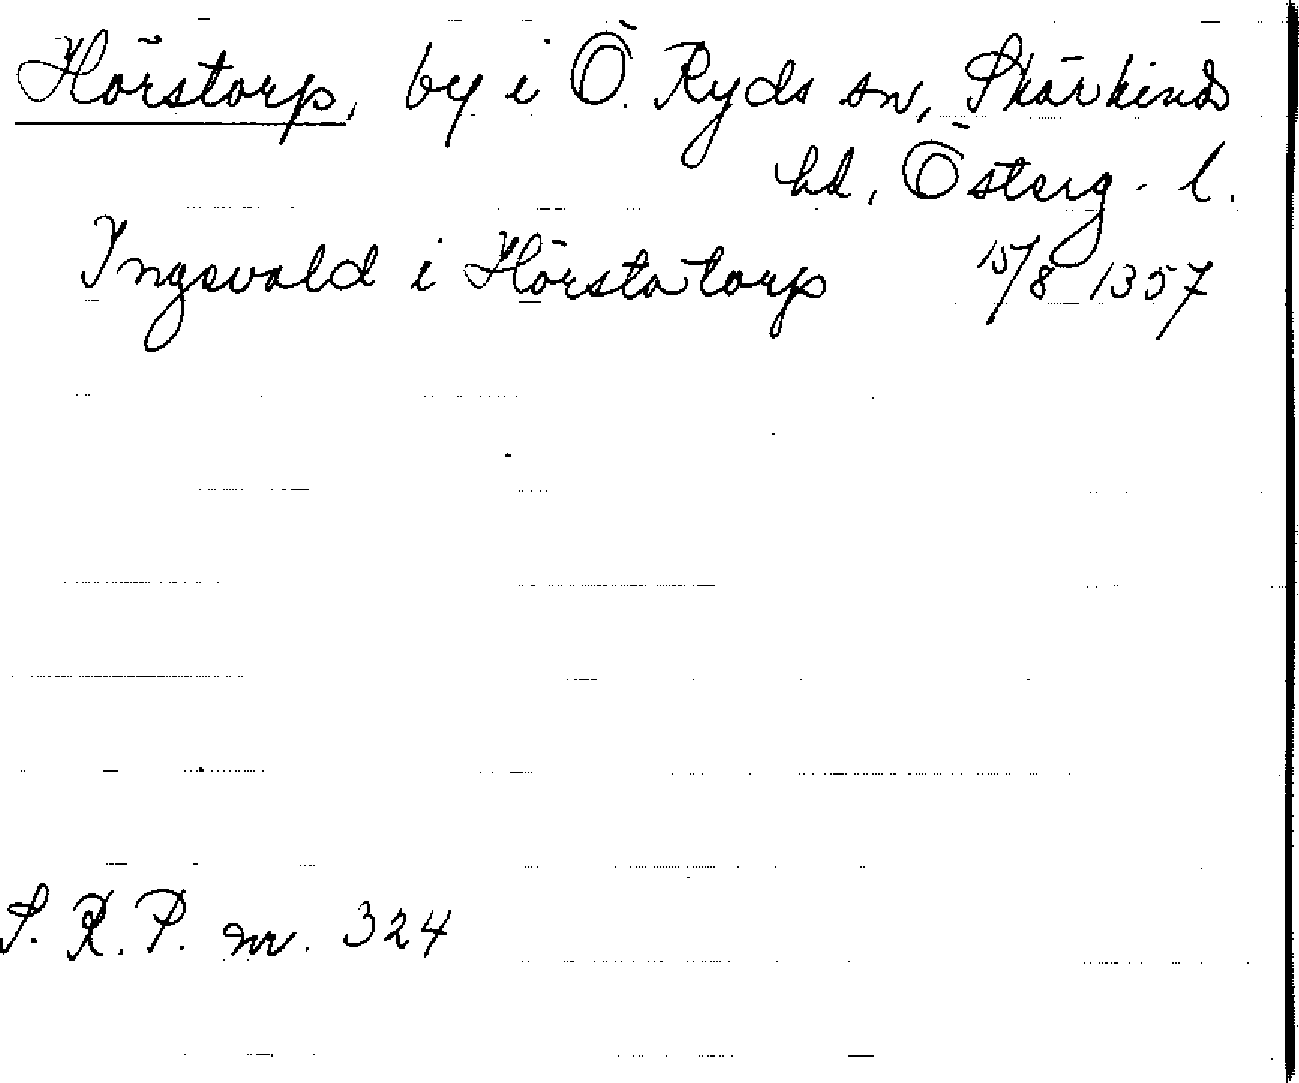 Hörstorp, by i Ö. Ryds sn, Skärkinds
hd, Österg. l.
Ingevald i Hörstatorp 15/8 1357
S. R. P. nr. 324